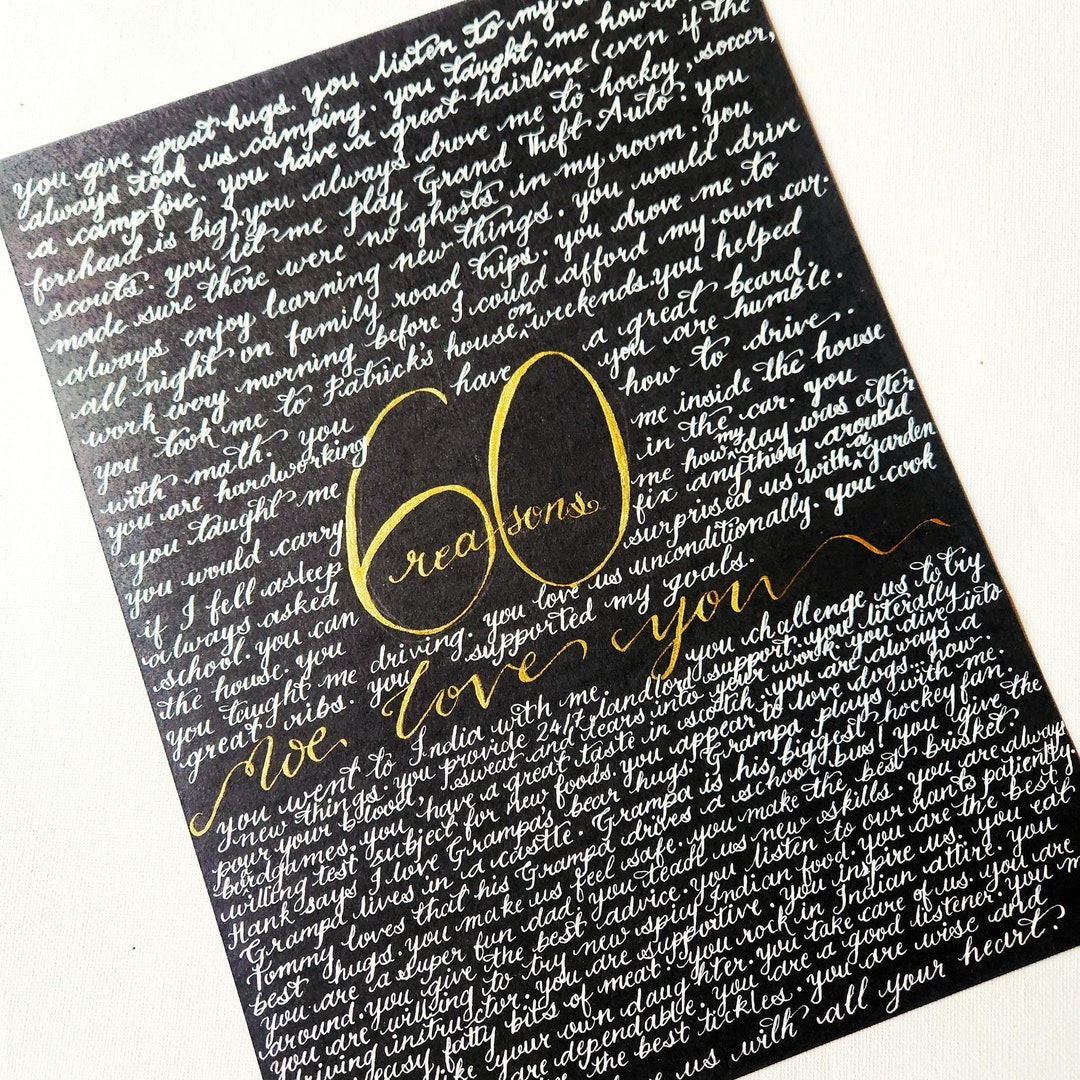 you give great hugs. you listen to my
always took us camping. you taught me how to
a campfire. you have a great hairline (even if the
forehead is big) you always drove me to hockey, soccer,
scouts. you let me play Grand Theft Auto. you
made sure there were no ghosts in my room. you
always enjoy learning new things. you would drive
all night on family road trips. you drove me to
work every morning before I could afford my own car.
you took me to Patrick's house on weekends. you helped
with math. you have a great beard.
you are hardworking you are humble.
you taught me how to drive.
you would carry me inside the house
if I fell asleep in the car. you
always asked me how my day was after
school. you can fix anything around
the house. you surprised us with a garden
you taught me driving. you love us unconditionally. you cook
great ribs. you supported my goals.
60
reasons
we love you
you went to India with me. you challenge us to try
new things. you provide 24/7 landlord support. you literally
pour your blood, sweat and tears into your work. you dive into
bordgames. you have a great taste in scotch. you are always a
willing test subject for new foods. you appear to love dogs... now.
Hank says I love Grampas bear hugs. Grampa plays with me.
Grampa lives in a castle. Grampa is his biggest hockey fan.
Tommy loves that his Grampa drives a school bus! you give the
best hugs. you make us feel safe. you make the best brisket.
you are a super fun dad. you teach us new skills. you are always
around. you give the best advice. you listen to our rants patiently.
you are willing to try new spicy Indian food. you are the best
driving instructor. you are supportive. you inspire us. you eat
easy fatty bits of meat. you rock in Indian attire. you
like your own daughter. you take care of us. you are
are dependable. you are a good listener. you
the best tickles. you are wise and
us with all your heart.